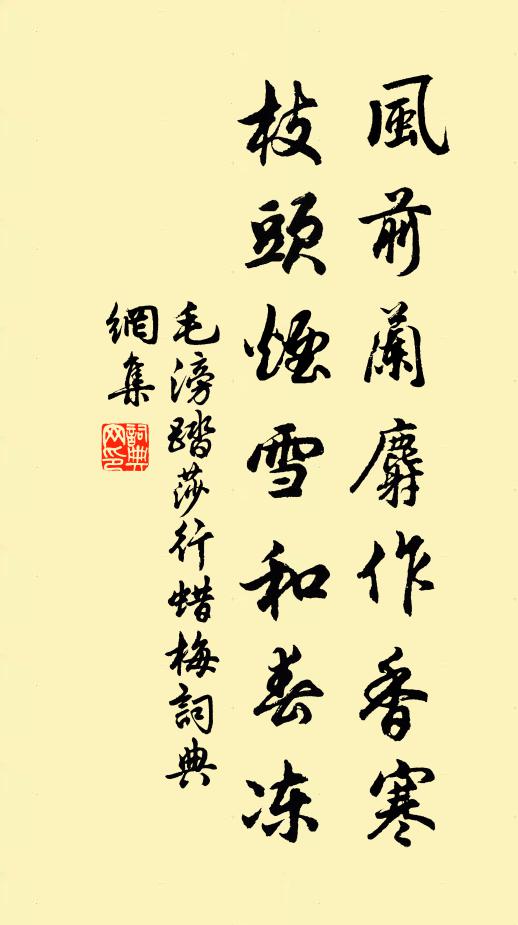 風前蘭麝作香寒
枝頭煙雪和春凍
毛滂踏莎行蜡梅詞典
網集
詞典
网印